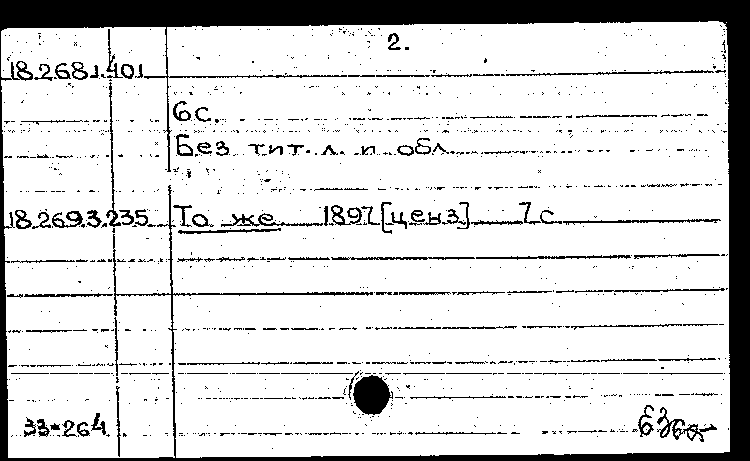 2.
18.268.1.401
6 с.
Без тит. л. и обл.
18.269.3.235 То же 1897 [ценз] 7 с
33-264